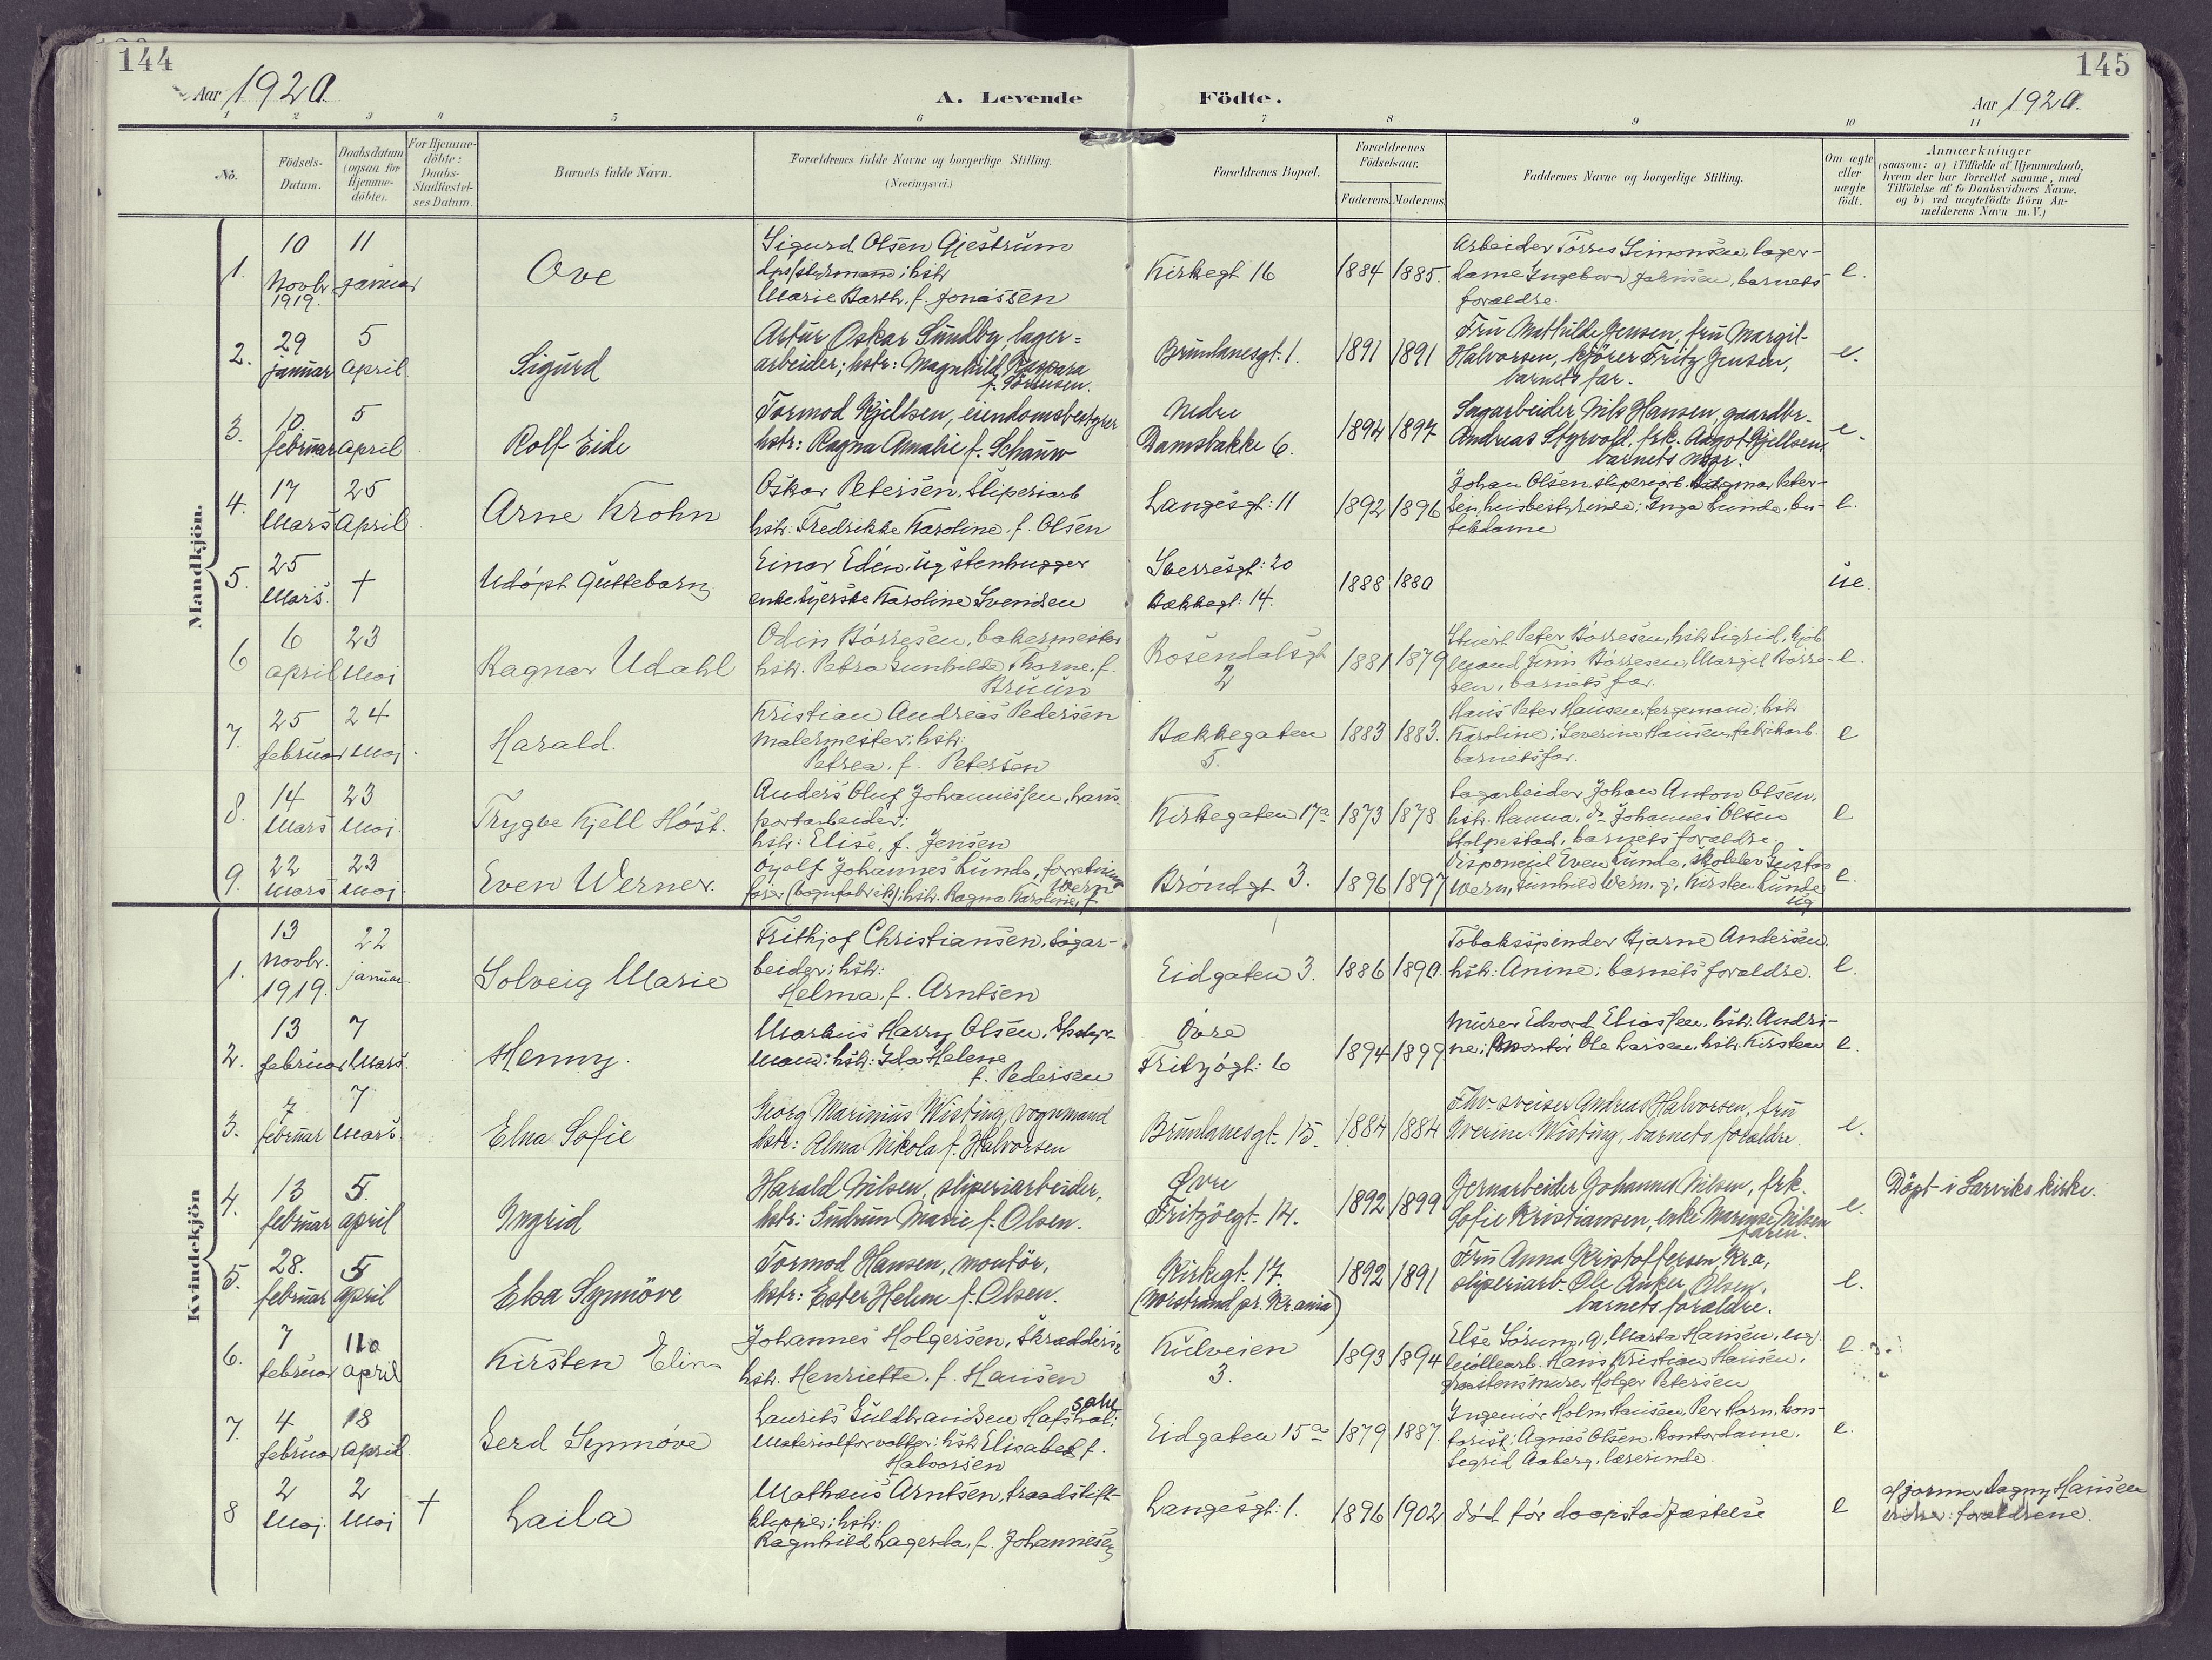 144
145
Aar 1920.
A. Levende Födte.
Aar 1920.
1 2 3 4 5 6 7 8 9 10 11
No.
Födsels-
Datum.
Daabsdatum
(ogsaa for
Hjemme-
döbte).
For Hjemme-
döbte:
Daabs-
Stadfæstel-
ses Datum.
Barnets fulde Navn.
Forældrenes fulde Navne og borgerlige Stilling.
(Næringsvei.)
Forældrenes Bopæl.
Forældrenes
Födselsaar.
Faderens. Moderens.
Faddernes Navne og borgerlige Stilling.
Om ægte
eller
uægte
födt.
Anmærkninger
(saasom: a) i Tilfælde af Hjemmedaab,
hvem der har forrettet samme, med
Tilföielse af to Daabsvidners Navne.
og b) ved uægtefödte Börn An-
melderens Navn m. V.)
Mandkjön.
1.
10
Novbr
1919.
11
januar
Ove
Sigurd Olsen Gjestrum
hstr
Marie Barth. f. Jonassen
Kirkegt 16
1884 1885.
Arbeider Törres Simonsen, lager-
dame Ingeborg barnets
forældre.
e.
2.
29
januar
5
april
Sigurd
Astur Oskar Sundby, lager=
arbeider; hstr: Magnhild Kaspara
f. Börresen.
Brunlanesgt. 1.
1891 1891
Fru Mathilde Jensen, fru Margit
Halvorsen, kjörer Fritz Jensen,
barnets far.
e.
3.
10
februar
5
april
Rolf Eide
Tormod Kjellsen, eiendomsbestyrer
hstr: Ragna Amalie f. Schauw
Nedre
Damsbakke 6.
1894 1897
Sagarbeider Nils Hansen, gaardbr.
Andreas Styrvold, frk. Aagot Kjellsen,
barnets mor.
e.
4.
17
Mars
25
April
Arne Krohn
Oskar Petersen, Sliperiarb
hstr: Fredrikke Karoline f. Olsen
Langesgt: 11
1892 1896
Johan Olsen, sliperiarb. Dagmar Peter-
sen, husbestyrinde; Inga Lunde, bu-
tikdame
e.
5.
25
Mars
†
Udöpt Guttebarn
Einar Edén. ug stenhugger
enke syerske Karoline Svendsen
Sverresgt: 20
Bakkegt: 14.
1888 1880
ue.
6
6
april
23
Mai
Ragnar Udahl
Odin Börresen, bakermester
hstr. Petra Gunhilde Thorne, f.
Bruun
Rosendalsgt
2
1881 1879
Peter Börresen, hstr Sigrid, kjöb
mand Finn Börresen, Margit Börre-
sen, barnets far.
e.
7.
25
februar
24
Mai
Harald.
Kristian Andreas Pedersen
Malermester; hstr:
Petrea. f. Petersen
Bakkegaten
5.
1883 1883.
Hans Peter Hansen, fergemand; hstr
Karoline; Severine Hansen, fabrikarb.
barnets far.
e
8.
14
Mars
23
Mai.
Trygve Kjell Höst.
Anders Oluf Johannessen, trans-
portarbeider;
hstr: Elise, f. Jensen
Kirkegaten 17a
1873 1878
Sagarbeider Johan Anton Olsen,
hstr. Hanna, do Johannes Olsen
Stolpestad, barnets forældre.
e
9.
22
Mars
23
Mai.
Even Werner.
Johannes Lunde, forretnings-
förer (vognfabrik); hstr. Ragna Karoline, f.
Wern
Bröndgt 3.
1896 1897
Disponent Even Lunde, skoleelev Gustav
Wern, Gunhild Wern, Kirsten Lunde
ug
e.
Kvindekjön
1.
13
Novbr.
1919.
22
januar
Solveig Marie
Frithjof Christiansen, Sagar-
beider; hstr:
Helma, f. Arntsen
Eidgaten 3.
1886 1890.
Tobakspinder Bjarne Andersen.
hstr: Anine; barnets forældre.
e.
2.
13
februar
7
Mars.
Henny.
Markus Harry Olsen,
mand; hstr: Ida Helene
f. Pedersen
Övre
Fritzögt: 6
1894 1899
Murer Edvard Eliassen, hstr. Andri-
ne; Montör Ole Larsen, hstr. Kirsten
e.
3.
7
februar
7
Mars
Elna Sofie
Georg Marinius Wisting, vognmand
hstr: Alma Nikola f. Halvorsen
Brunlanesgt. 15.
1884 1884
Fhv. sveiser Andreas Halvorsen, fru
Iverine Wisting, barnets forældre.
e.
4.
13
februar
5.
april
Ingrid
Harald Nilsen, sliperiarbeider,
hstr: Gudrun Marie f. Olsen.
Øvre
Fritzöegt. 14.
1892 1899
Jernarbeider Johannes Nilsen, frk.
Sofie Kristiansen, enke Marense Nilsen
faren.
e.
Döpt i Larviks kirke.
5.
28.
februar
5
april
Elsa Synnöve
Tormod Hansen, montör,
hstr: Ester Helene f. Olsen.
Kirkegt. 17.
(Norstrand pr. Kr.ania)
1892 1891
Fru Anna Kristoffersen, Kr.a,
sliperiarb. Ole Anker Olsen,
barnets forældre.
e.
6.
7
februar
april
Kirsten Elin
Johannes Holgersen,
hstr. Henriette. f. Hansen
Kulveien
3.
1893 1894
Else Sörum, g, Marta Hansen, ug.
Hans Kristian Hansen,
Holger Petersen
e.
7.
4
februar
18
april
Gerd Synnöve
Laurits Guldbrandsen
Materialforvalter; hstr Elisabet f.
Halvorsen
Eidgaten 15a
1879 1887.
Ingeniör Holm Hansen, Per Horn, kon-
torist; Agnes Olsen, kontordame,
Sigrid Aaberg, lærerinde.
e.
8
2
Mai
2
Mai
†
Laila
Mathæus Arntsen, traadstift-
klipper; hstr:
Ragnhild Lagerda, f. Johannesen
Langesgt: 1.
1896 1902
död för daapstadfæstelse
e
af jormor Dagny Hansen
vidner: forældrene.